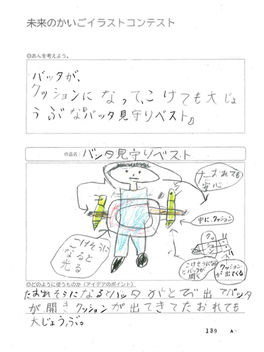 未来のかいごイラストコンテスト
◎あんを考えよう。
バッタが、
クッションになって、こけても大じょ
うぶな『バッタ見守りベスト』
作品名: バッタ見守りベスト
たおれても
安心
中にクッション
こけそうに
なると
光る
こけそうになる
とバッタが開く
クッション
が出てくる
◎どのように使うものか(アイデアのポイント)
たおれそうになるとバッタがとび出てバッタ
が開きクッションが出てきてたおれても
大じょうぶ。
139 A-